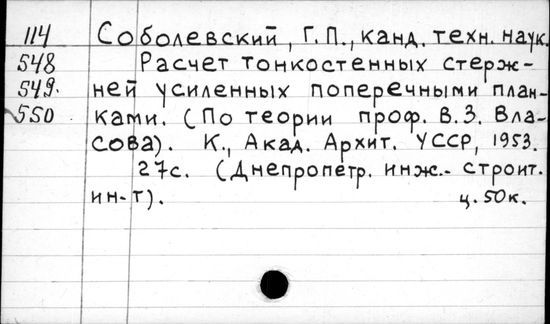 114 Соболевский, Г.П., канд. техн. наук.
548 Расчет тонкостенных стерж-
549. ней усиленных поперечными план-
550 ками. (По теории проф. В.З. Вла-
сова). К., Акад. Архит. УССР, 1953.
27с. (Днепропетр. инж.- строит.
ин-т). ц. 50к.